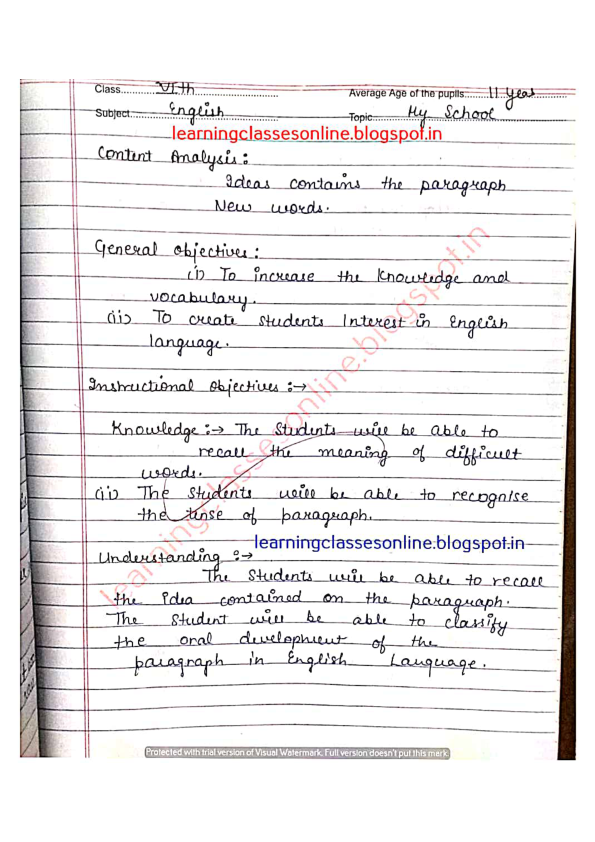 Class......VIth......
Average Age of the pupils......11 year......
Subject......English......
Topic......My School......
learningclassesonline.blogspot.in
Content Analysis :
Ideas contains the paragraph
New words.
General objectives :
(i) To increase the knowledge and
vocabulary.
(ii) To create students Interest in English
language.
Instructional objectives :→
Knowledge :→ The Students will be able to
recall the meaning of difficult
words.
(ii) The students will be able to recognise
the tense of paragraph.
learningclassesonline.blogspot.in
Understanding :→
The Students will be able to recall
the idea contained on the paragraph.
The student will be able to classify
the oral development of the
paragraph in English Language.
learningclassesonline.blogspot.in
Protected with trial version of Visual Watermark. Full version doesn't put this mark.